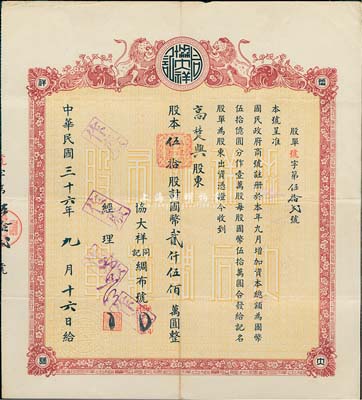 協大祥
股單號字第伍拾弍號
本號呈准
國民政府商號註冊於本年九月增加資本總額為國幣
伍拾億圓分作壹萬股每股國幣伍拾萬圓合發給記名
股單為股東出資憑證今收到
高楚興股東
股本伍拾股計國幣貳仟伍佰萬圓整
協大祥同記綢布號
經理
中華民國三十六年九月十六日給